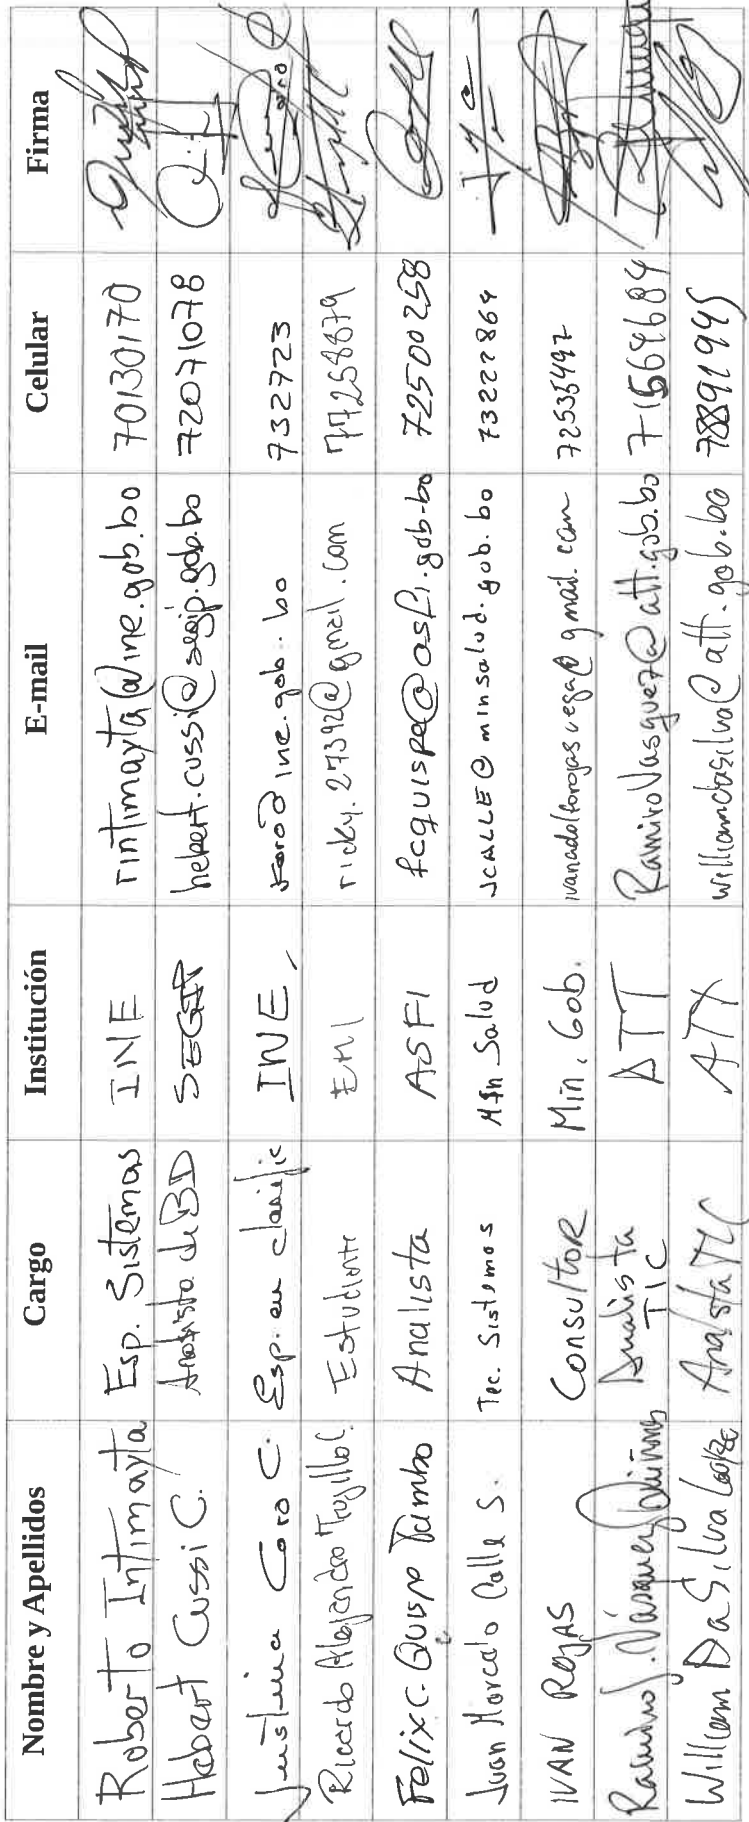 Nombre y Apellidos Cargo Institución E-mail Celular Firma
Roberto Intimayta Esp. Sistemas INE rintimayta@ine.gob.bo 70130170
Hebert Cussi C. Analista de BD SEGIP hebert.cussi@segip.gob.bo 72071078
Justina Coro C. Esp. en clasific INE, jcoro@ine.gob.bo 732723
Ricardo Alejandro Trujillo C. Estudiante EMI ricky.27392@gmail.com 77258879
Felix C. Quispe Tambo Analista ASFI fcquispe@asfi.gob.bo 72500258
Juan Marcelo Calle S. Tec. Sistemas Min Salud JCALLE@minsalud.gob.bo 73222864
IVAN ROJAS CONSULTOR Min. Gob. ivanadolforojasvega@gmail.com 72535497
Ramiro J. Vásquez Quiñones Analista TIC ATT RamiroVasquez@att.gob.bo 71564684
William Da Silva Analista TIC ATT williamdasilva@att.gob.bo 78891945